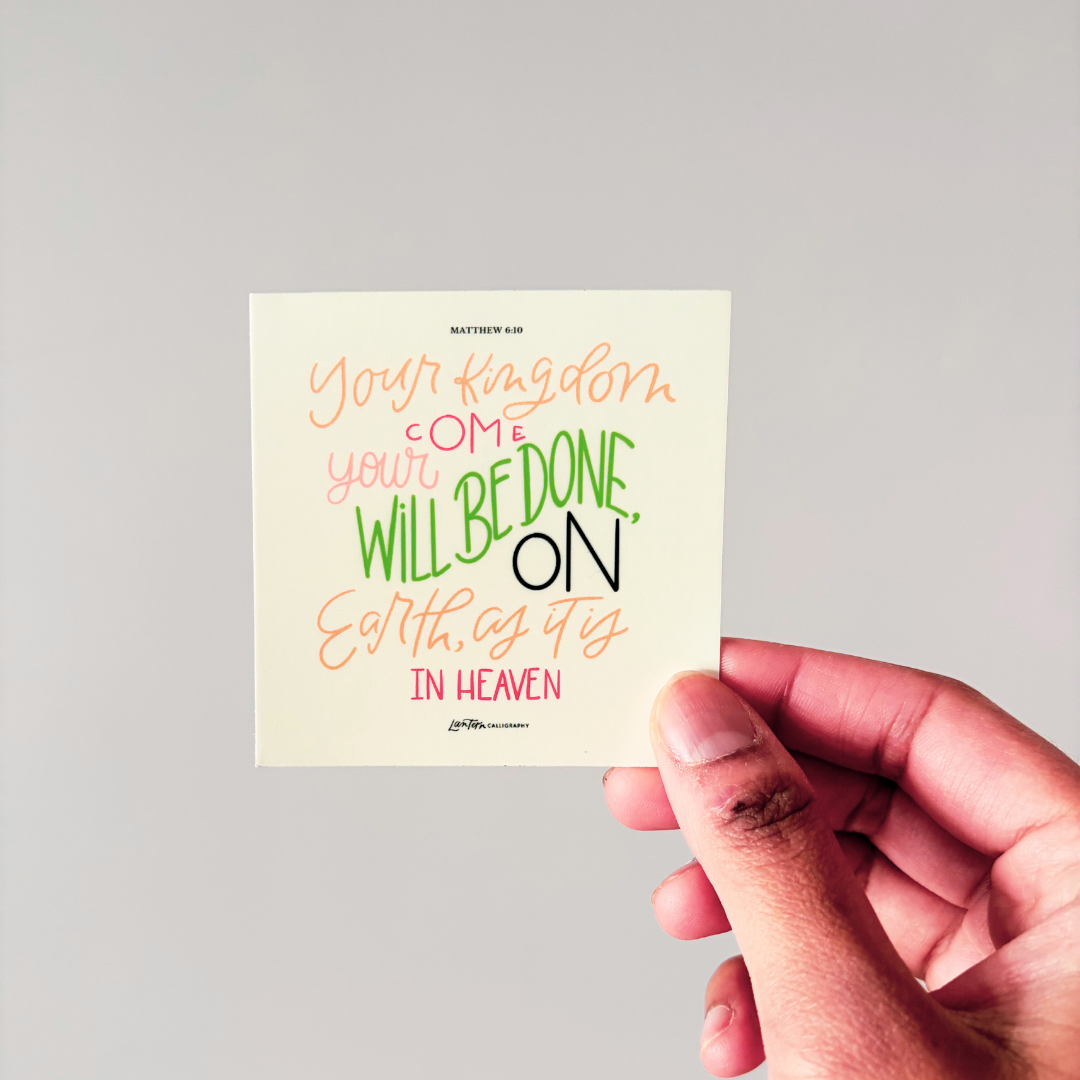 MATTHEW 6:10
your kingdom
COME
your
WiLL BE DONE,
ON
Earth, as iT is
IN HEAVEN
Lantern CALLIGRAPHY